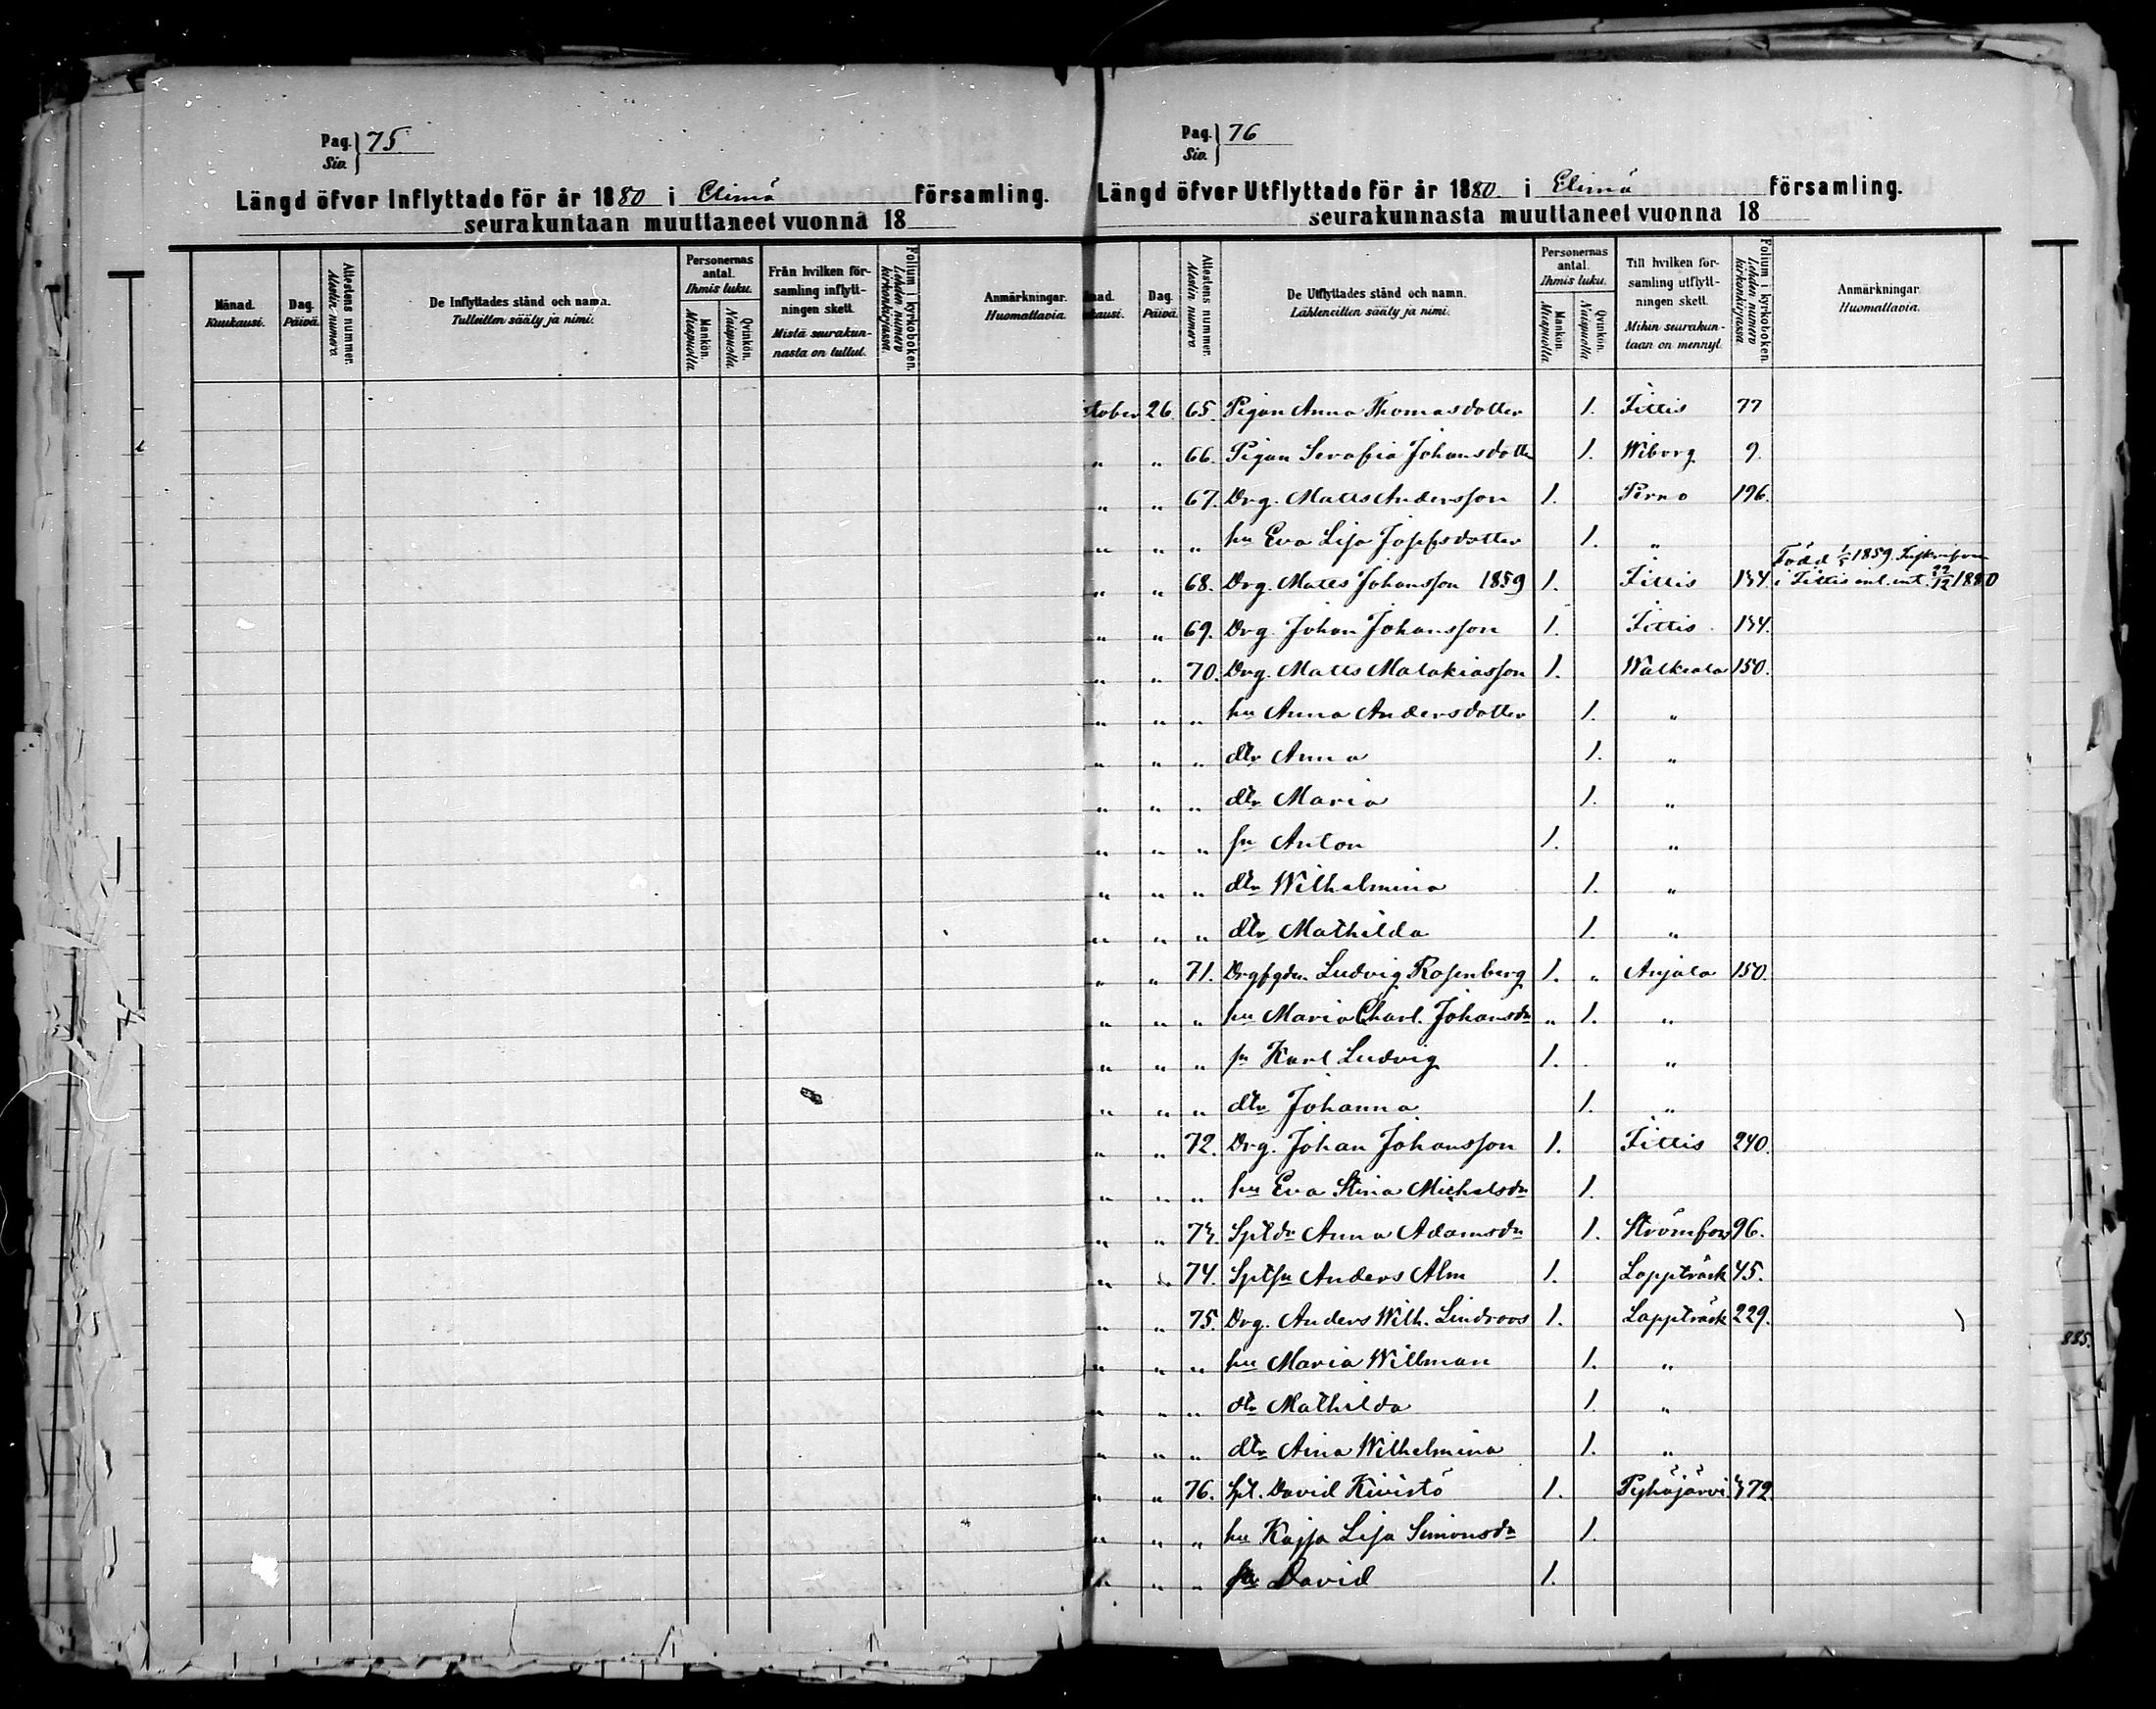 Pag. 75.
Siv.
Längd öfver Inflyttade för år 1880 i Elimä församling.
seurakuntaan muuttaneet vuonna 18
Månad. Kuukausi.
Dag. Päivä.
Attestens nummer. Atestin numero.
De Inflyttades stånd och namn. Tulleitten sääty ja nimi.
Personernas antal. Ihmis luku.
Mankön. Miespuolta
Qvinkön. Naispuolta
Från hvilken församling inflyttningen skett. Mistä seurakunnasta on tullut.
Folium i kyrkoboken. Lehden numero kirkonkirjassa.
Anmärkningar. Huomattavia.
Pag. 76
Siv.
Längd öfver Utflyttade för år 1880. i Elimä församling.
seurakunnasta muuttaneet vuonna 18
nad. kausi.
Dag. Päivä.
Attestens nummer. Atestin numero
De Utflyttades stånd och namn. Lähteneitten sääty ja nimi.
Personernas antal. Ihmis luku.
Mankön. Miespuolta
Qvinkön. Naispuolta
Till hvilken församling utflyttningen skett. Mihin seurakuntaan on mennyt.
Folium i kyrkoboken. Lehden numero kirkonkirjassa
Anmärkningar. Huomattavia.
tober 26. 65. Pigan Anna Thomasdotter 1. Sittis 77
" " 66. Pigan Serafia Johansdotter 1. Wiborg 9.
" " 67. Drg. Matts Andersson 1. Perno 196.
" " " hu Eva Lisa Josefsdotter 1. "
Född 1/5 1859.
" " 68. Drg. Matts Johansson 1859 1. Sittis 134. i Sittis enl. int. 22/12 1880
" " 69. Drg. Johan Johansson 1. Sittis 134.
" " 70. Drg. Matts Malakiasson 1. Walkeala 150.
" " " hu Anna Andersdotter 1. "
" " " dtr Anna 1. "
" " " dtr Maria 1. "
" " " sn Anton 1. "
" " " dtr Wilhelmina 1. "
" " " dtr Mathilda 1. "
" " 71. Ludvig Rosenberg 1. " Anjala 150.
" " " hu Maria Charl. Johansdr " 1. "
" " " sn Karl Ludvig 1. "
" " " dtr Johanna 1. "
" " 72. Drg. Johan Johansson 1. Sittis 240.
" " " hu Eva Stina Michelsdr 1.
" " 73. Spitdr Anna Adamsdr 1. Strömfors 96.
" " 74. Spitsn Anders Alm 1. Lappträsk 45.
" " 75. Drg. Anders Wilh. Lindroos 1. Lappträsk 229.
" " " hu Maria Willman 1. "
" " " dtr Mathilda 1. "
" " " dtr Aina Wilhelmina 1. "
" " 76. Spit. David Kivistö 1. Pyhäjärvi 372.
" " " hu Kajsa Lisa Simonsdr 1.
" " " sn David 1.
885.